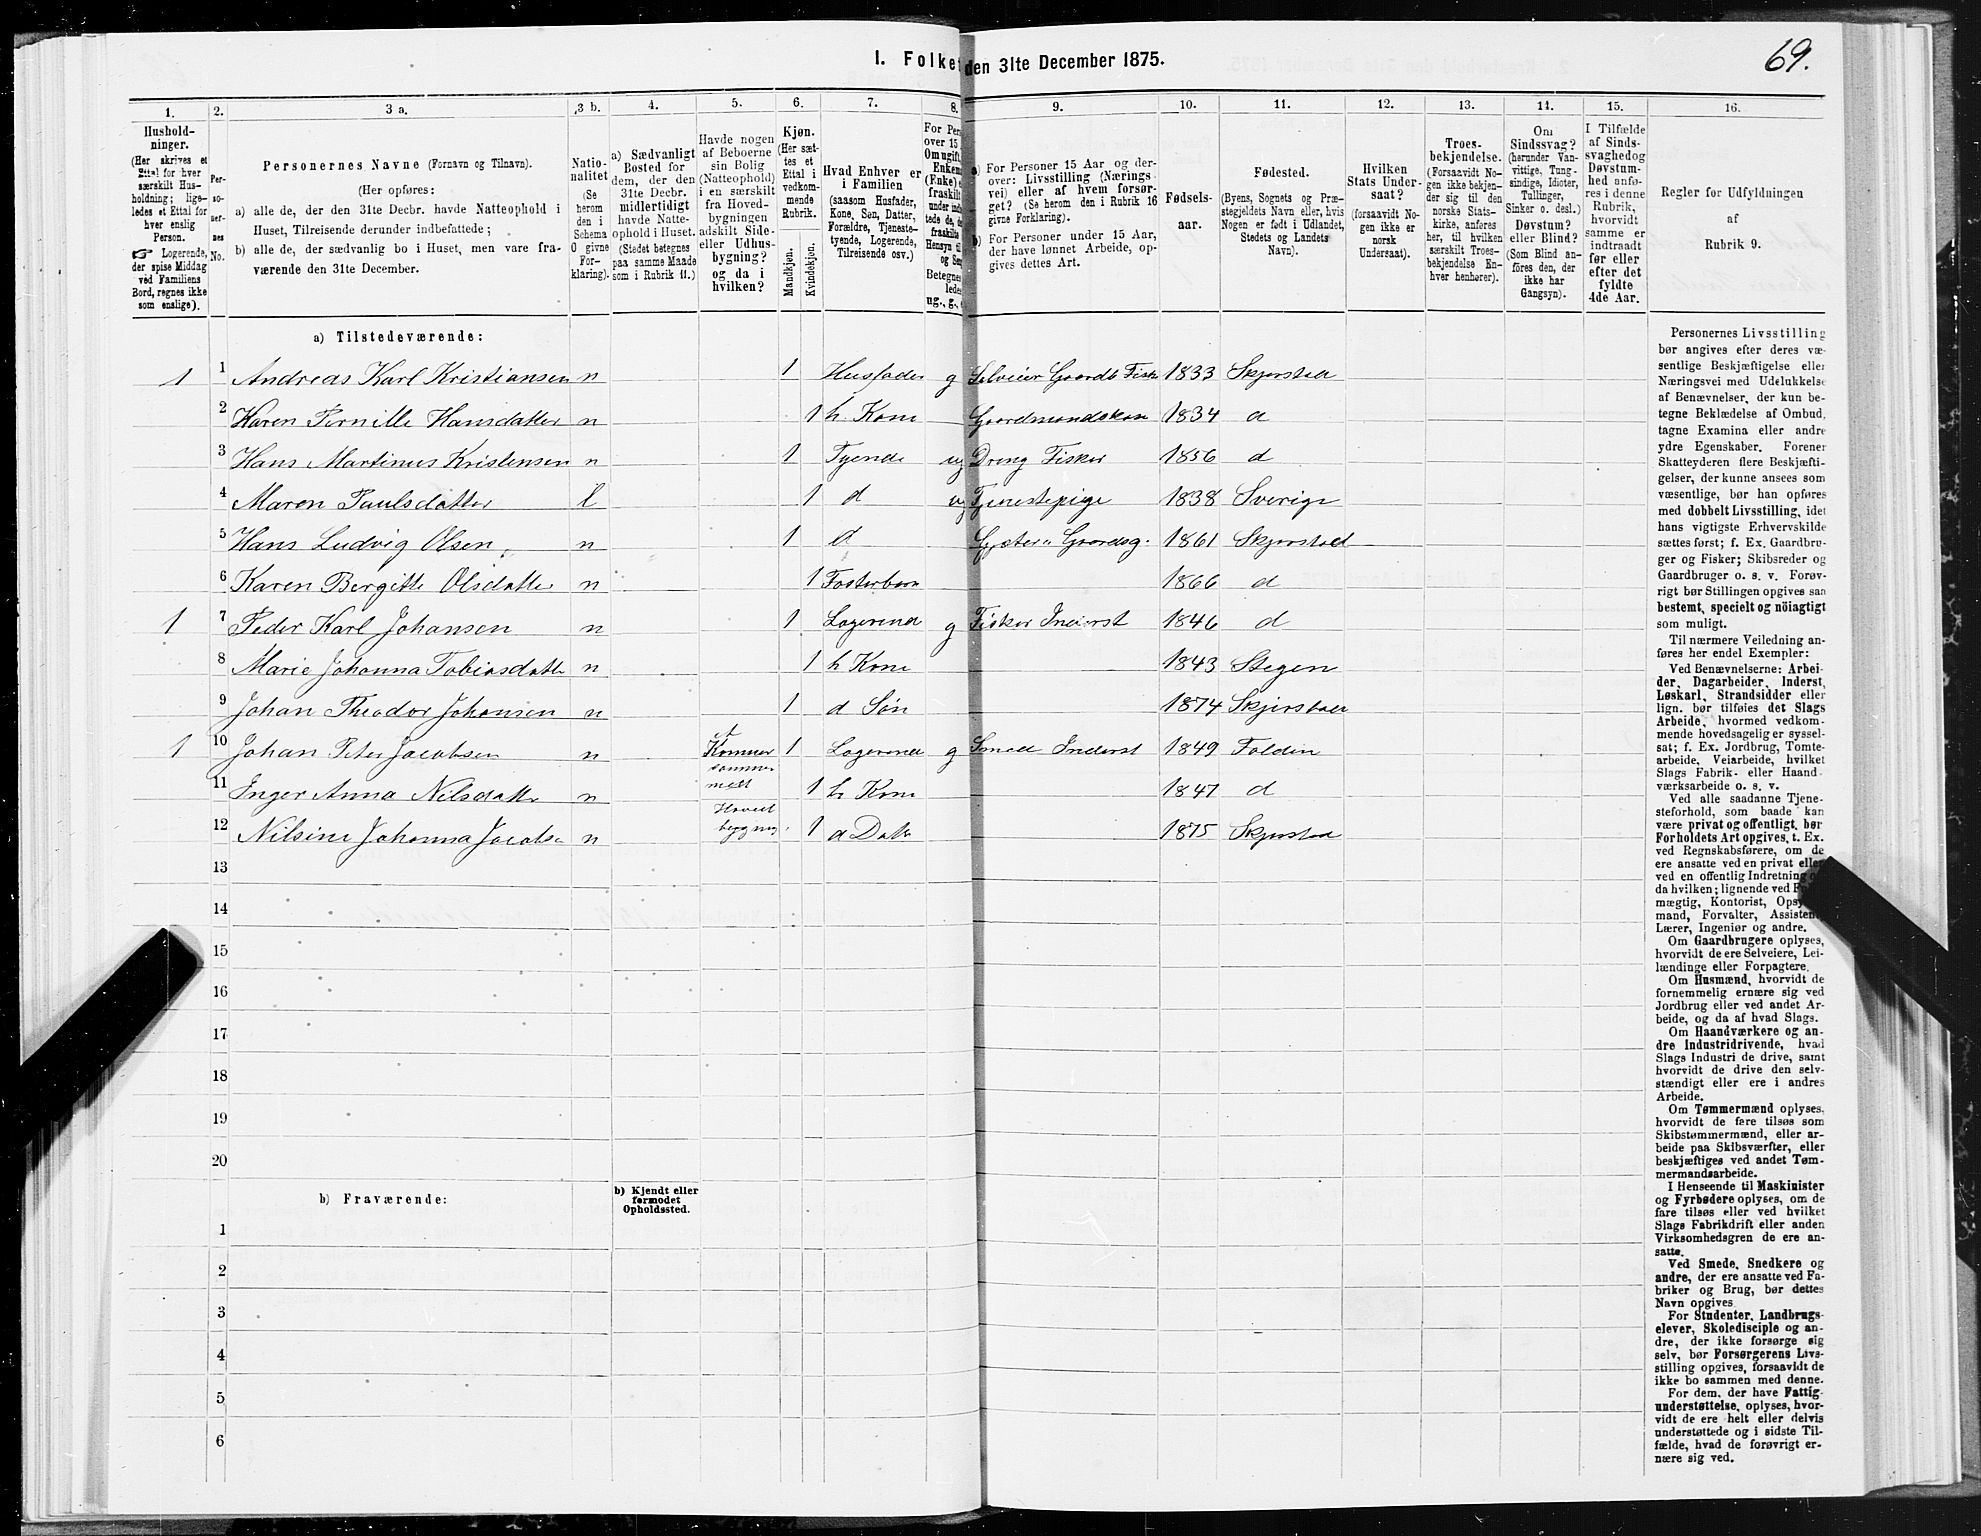 69.
1. Folke den 31te December 1875.
1. 2. 3 a. 3 b. 4. 5. 6. 7. 8. 9. 10. 11. 12. 13. 14. 15. 16.
Hushold-
ninger.
(Her skrives et
Ettal for hver
særskilt Hus-
holdning; lige-
ledes et Ettal for
hver enslig
Person.
Logerende,
der spise Middag
ved Familiens
Bord, regnes ikke
som enslige).
Per-
so-
ner-
nes
No.
Personernes Navne (Fornavn og Tilnavn).
(Her opføres:
a) alle de, der den 31te Decbr. havde Natteophold i
Huset, Tilreisende derunder indbefattede;
b) alle de, der sædvanlig bo i Huset, men vare fra-
værende den 31te December.
Natio-
nalitet
(Se
herom
den i
Schema
O givne
For-
klaring).
a) Sædvanligt
Bosted for
dem, der den
31te Decbr.
midlertidigt
havde Natte-
ophold i Huset.
(Stedet betegnes
paa samme Maade
som i Rubrik 11.)
Havde nogen
af Beboerne
sin Bolig
(Natteophold)
i en særskilt
fra Hoved-
bygningen
adskilt Side-
eller Udhus-
bygning?
og da i
hvilken?
Kjøn.
(Her sæt-
tes et
Ettal i
vedkom-
mende
Rubrik.
Mandkjøn.
Kvindekjøn.
Hvad Enhver er
i Familien
(saasom Husfader,
Kone, Søn, Datter,
Forældre, Tjeneste-
tyende, Logerende,
Tilreisende osv.)
For Per
over 15
Om ugift,
Enkem
(Enke) e
fraskilt
under ind
tede de, d
fraskilte
Hensyn til
og Sen
Betegnes
lede
ug., g.,
a) For Personer 15 Aar og der-
over: Livsstilling (Nærings-
vei) eller af hvem forsør-
get? (Se herom den i Rubrik 16
givne Forklaring).
b) For Personer under 15 Aar,
der have lønnet Arbeide, op-
gives dettes Art.
Fødsels-
aar.
Fødested.
(Byens, Sognets og Præ-
stegjeldets Navn eller, hvis
Nogen er født i Udlandet,
Stedets og Landets
Navn).
Hvilken
Stats Under-
saat?
(forsaavidt No-
gen ikke er
norsk
Undersaat).
Troes-
bekjendelse.
(Forsaavidt No-
gen ikke bekjen-
der sig til den
norske Stats-
kirke, anføres
her, til hvilken
særskilt Troes-
bekjendelse En-
hver henhører).
Om
Sindssvag?
(herunder Van-
vittige, Tung-
sindige, Idioter,
Tullinger,
Sinker o. desl.)
Døvstum?
eller Blind?
(Som Blind an-
føres den, der
ikke har
Gangsyn).
I Tilfælde
af Sinds-
svaghedog
Døvstum-
hed anfø-
res i denne
Rubrik,
hvorvidt
samme er
indtraadt
før eller
efter det
fyldte
4de Aar.
Regler for Udfyldningen
af
Rubrik 9.
a) Tilstedeværende:
1 1 Andreas Karl Kristiansen n 1 Husfader g Selveier Gaardb Fisk 1833 Skjerstad
2 Karen Pernille Hansdatter n 1 h. Kone Gaardmandskone 1834 d
3 Hans Martinus Kristensen n 1 Tyende ug Dreng Fisker 1856 d
4 Maren Paulsdatter l 1 d ug Tjenestepige 1838 Sverige
5 Hans Ludvig Olsen n 1 d Gaardsg. 1861 Skjerstad
6 Karen Bergitte Olsdatter n 1 Fosterbarn 1866 d
1 7 Peder Karl Johansen n 1 Logerend g Fisker Inderst 1846 d
8 Marie Johanna Tobiasdatte n 1 h Kone 1843 Stegen
9 Johan Theodor Johansen n 1 d Søn 1874 Skjerstad
1 10 Johan Peter Jacobsen n et Kammer 1 Logerend g Smed Inderst 1849 Folden
sammen
11 Inger Anna Nilsdatte n med 1 h Kone 1847 d
Hoved
12 Nilsine Johanna Jacobs n bygning. 1 d Datr 1875 Skjerstad
13
14
15
16
17
18
19
20
b) Fraværende:
b) Kjendt eller
formodet
Opholdssted.
1
2
3
4
5
6
Personernes Livsstilling
bør angives efter deres væ-
sentlige Beskjæftigelse eller
Næringsvei med Udelukkelse
af Benævnelser, der kun be-
tegne Beklædelse af Ombud,
tagne Examina eller andre
ydre Egenskaber. Forener
Skatteyderen flere Beskjæfti-
gelser, der kunne ansees som
væsentlige, bør han opføres
med dobbelt Livsstilling, idet
hans vigtigste Erhvervskilde
sættes først; f. Ex. Gaardbru-
ger og Fisker; Skibsreder og
Gaardbruger o. s. v. Forøv-
rigt bør Stillingen opgives saa
bestemt, specielt og nöiagtigt
som muligt.
Til nærmere Veiledning an-
føres her endel Exempler:
Ved Benævnelserne: Arbei-
der, Dagarbeider, Inderst,
Løskarl, Strandsidder eller
lign. bør tilføies det Slags
Arbeide, hvormed vedkom-
mende hovedsagelig er syssel-
sat; f. Ex. Jordbrug, Tomte-
arbeide, Veiarbeide, hvilket
Slags Fabrik- eller Haand-
værksarbeide o. s. v.
Ved alle saadanne Tjene-
steforhold, som baade kan
være privat og offentligt, bør
Forholdets Art opgives, t. Ex.
ved Regnskabsførere, om de
ere ansatte ved en privat eller
ved en offentlig Indretning
da hvilken; lignende ved
mægtig, Kontorist, Opsy
mand, Forvalter, Assistent,
Lærer, Ingeniør og andre.
Om Gaardbrugere oplyses,
hvorvidt de ere Selveiere, Lei-
lændinge eller Forpagtere.
Om Husmænd, hvorvidt de
fornemmelig ernære sig ved
Jordbrug eller ved andet Ar-
beide, og da af hvad Slags.
Om Haandværkere og an-
dre Industridrivende, hvad
Slags Industri de drive, samt
hvorvidt de drive den selv-
stændigt eller ere i andres
Arbeide.
Om Tømmermænd oplyses,
hvorvidt de fare tilsøs som
Skibstømmermænd, eller ar-
beide paa Skibsværfter, eller
beskjæftiges ved andet Tøm-
mermandsarbeide.
I Henseende til Maskinister
og Fyrbødere oplyses, om de
fare tilsøs eller ved hvilket
Slags Fabrikdrift eller anden
Virksomhedsgren de ere an-
satte.
Ved Smede, Snedkere og
andre, der ere ansatte ved Fa-
briker og Brug, bør dettes
Navn opgives.
For Studenter, Landbrugs-
elever, Skoledisciple og an-
dre, der ikke forsørge sig
selv, bør Forsørgerens Livs-
stilling opgives, forsaavidt de
ikke bo sammen med denne.
For dem, der have Fattig-
understøttelse, oplyses, hvor-
vidt de ere helt eller delvis
understøttede og i sidste Til-
fælde, hvad de forøvrigt er-
nære sig ved.